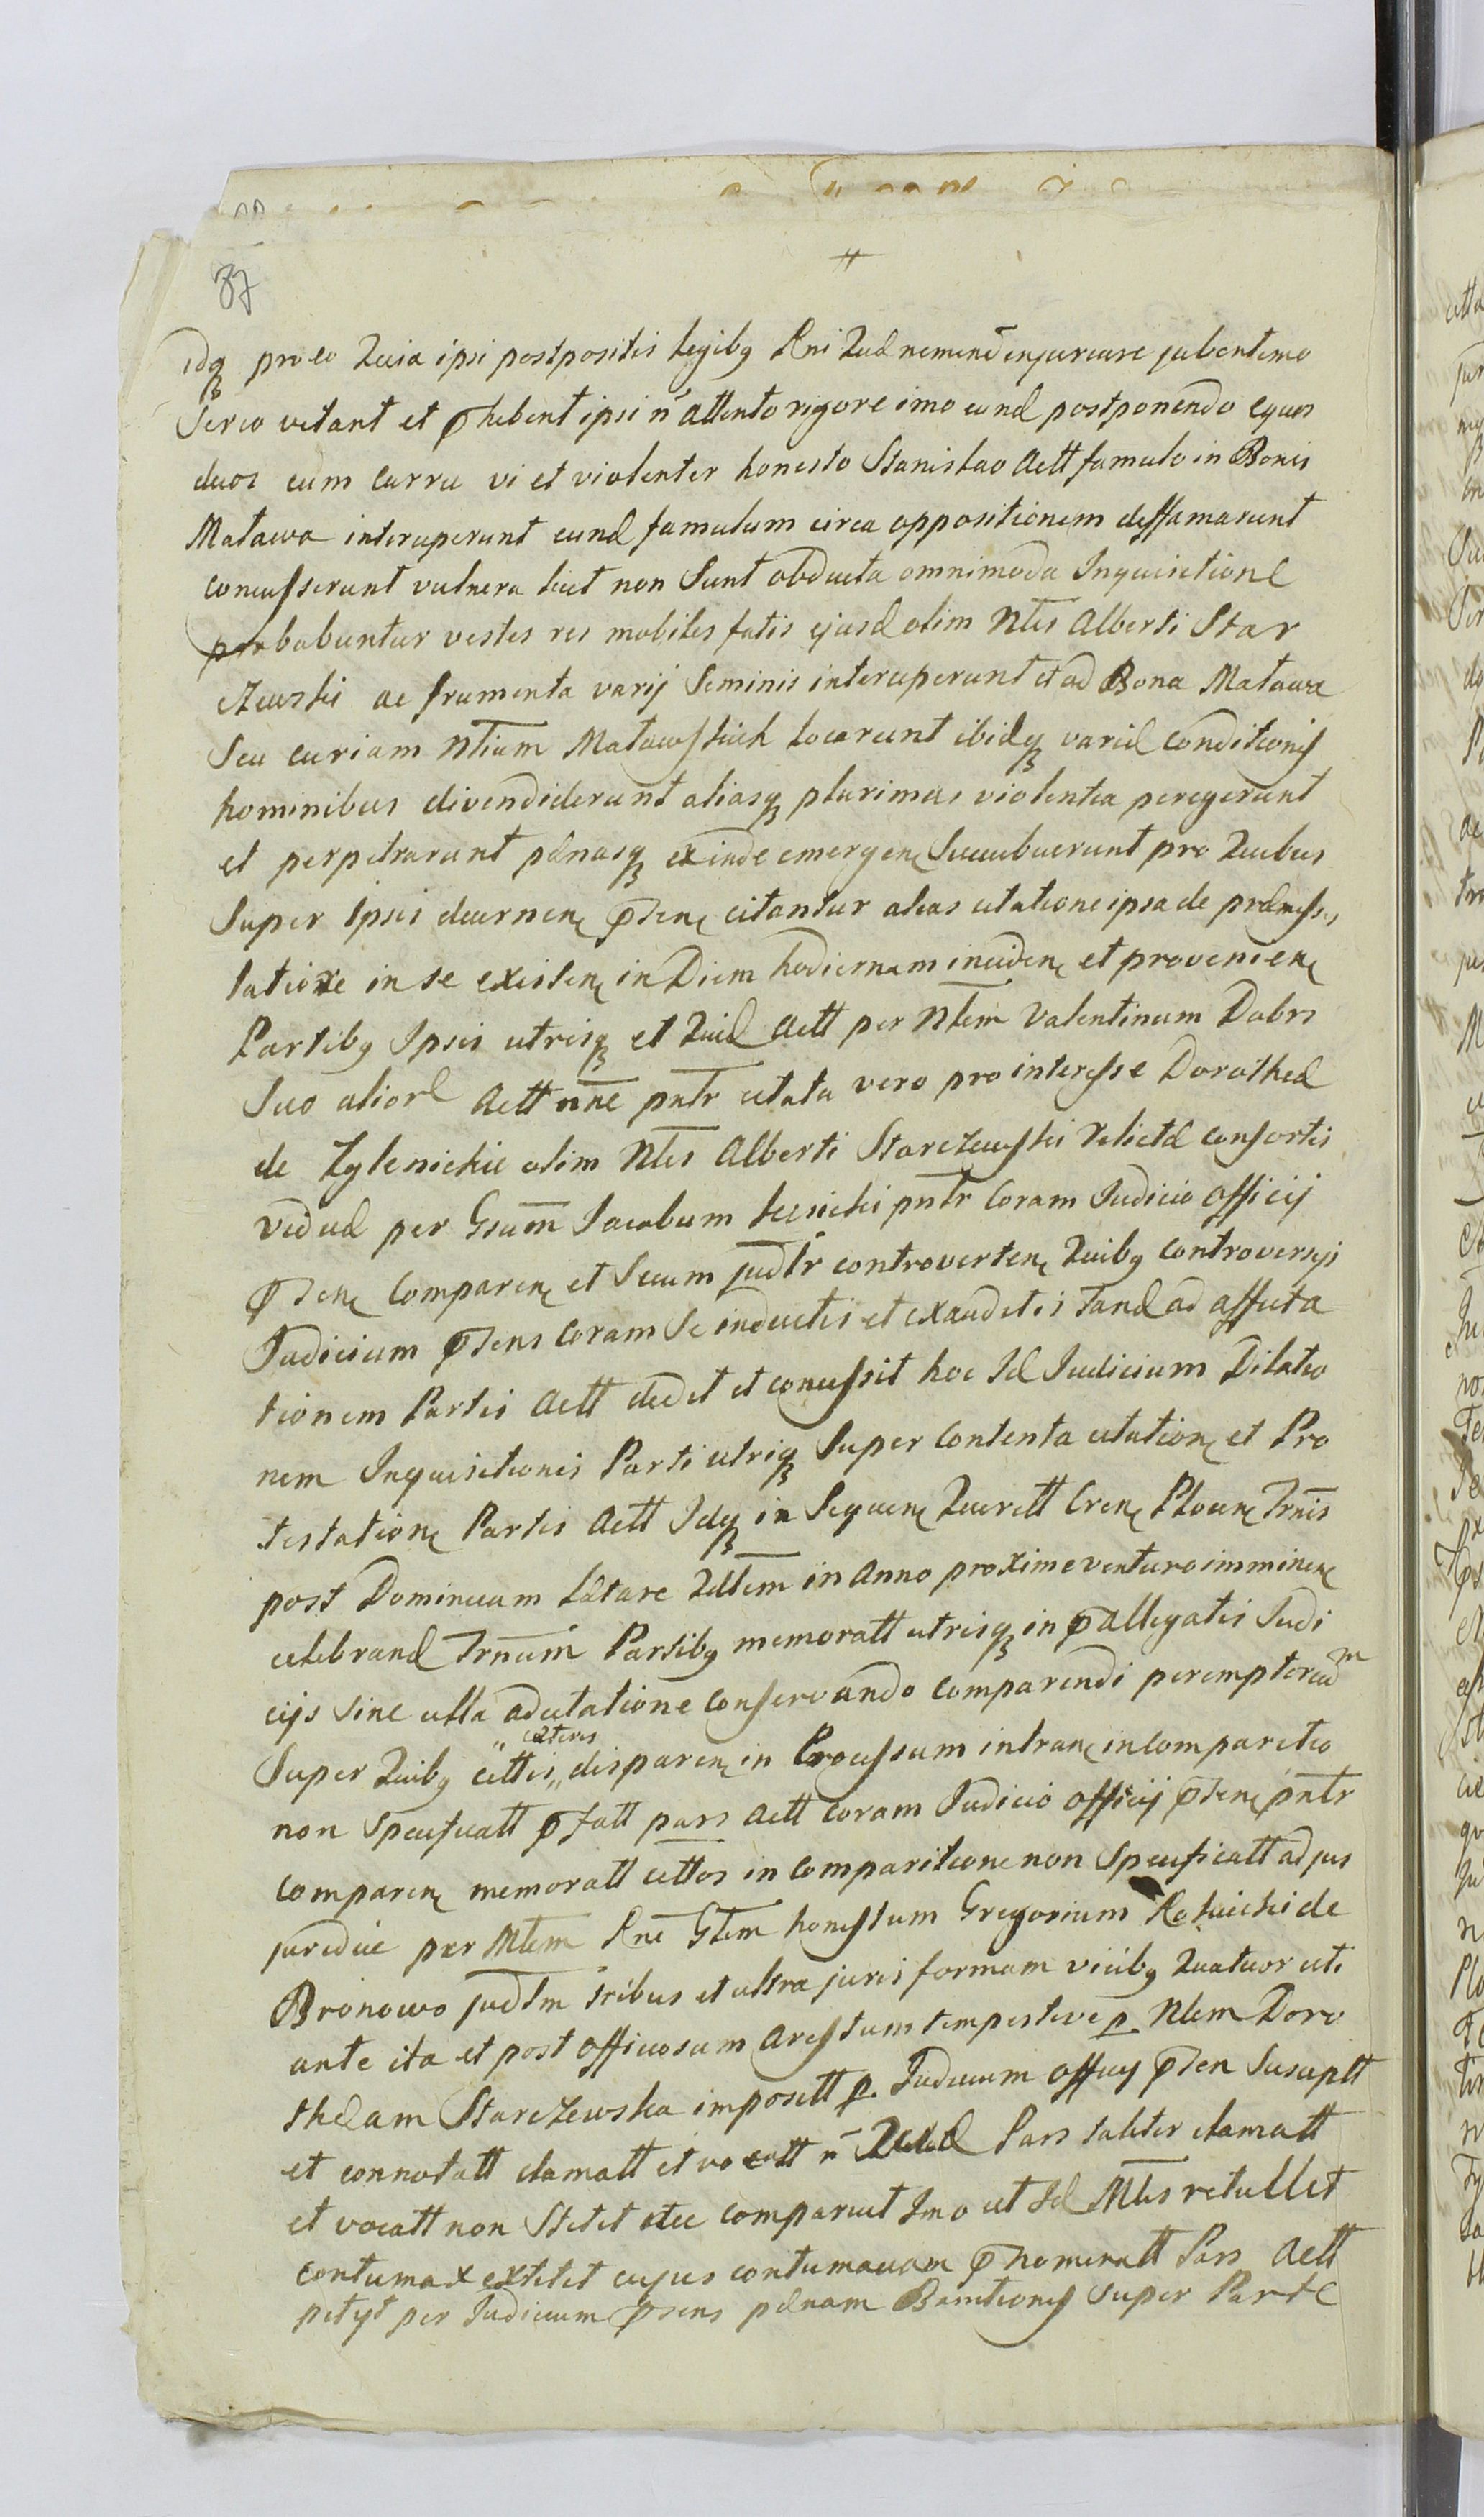 #
87
idq₃ pro eo Quia ipsi postpositis Legibq Rni Quae neminē injuriare jubent imo
Serio vetant et ꝓhibent ipsi n̄ attento rigore imo eund postponendo equos
duos cum curru vi et violenter honesto Stanislao Actt famulo in Bonis
Matawa interuperunt eund famulum circa oppositionem deffamarunt
concusserunt vulnera licet non Sunt obducta omnimoda Inquisitione
probabuntur vestes res mobiles fatis ejusd olim Ntis Alberti Star
czewski ac frumenta varij Seminis interuperunt et ad Bona Matawa
Seu curiam Ntium Matawskich locarunt ibidq₃ variae conditionis
hominibus divendiderunt aliasq₃ plurimas violentia peregerunt
et perpetrarunt paenasq₃ exinde emergen Succubuerunt pro Quibus
Super Ipsis decernen ꝓsen citantur alias citatione ipsa de praemissis
latiore in se existen in Diem hodiernam inciden et provenien
Partibq Ipsis utrisq₃ et Quid Actt per Ntem Valentinum Dabrs
Suo aliore Actt nn̄e pntr citata vero pro interesse Dorothea
de Zglenickie olim Ntis Alberti Starczewski relictae consortis
viduae per Gsum Jacobum Lesicki pntr Coram Judicio officij
ꝓsen Comparen et Secum judtr controverten Quibq controversijs
Judicium ꝓsens coram Se inductis et exauditis Tand ad affecta
tionem Partis Actt dedit et concessit hoc Id Judicium Dilatio
nem Inquisitionis Parti utriq₃ Super Contenta citation et Pro
testation Partis Actt Idq₃ in Sequen Querell Cren Plocen Trnis
post Dominicam Laetare Qdttem in Anno proxime venturo imminen
celebrand Trnum Partibq memoratt utrisq₃ in ꝓallegatis Judi
cijs sine ulla adcitatione Conservando comparendi peremptoriam
Super Quibq cittis „ caeteris „ disparen in Processum intran in Comparitio
non Specificatt ꝓfatt pars Actt coram Judicio officij ꝓsen pntr
comparen memoratt cittos in Comparitione non Specificatt ad jus
juridice per Mtem Rnē Gtem honestum Gregorium Rokicki de
Bronowo judtm tribus et ultra juris formam vicibq Quatuor uti
ante ita et post officiosum Arestum tempestive p. Ntem Doro
theam Starczewska impositt p. Judicium officij ꝓsen Susceptt
et connotatt clamatt et vocatt n̄ Quae Pars taliter clamatt
et vocatt non Stetit nec comparuit Imo ut Id Mtis retullit
contumax extitit cujus contumaciam ꝓnominatt Pars Actt
petijt per Judicium ꝓsens paenam Bannitionis Super Parte